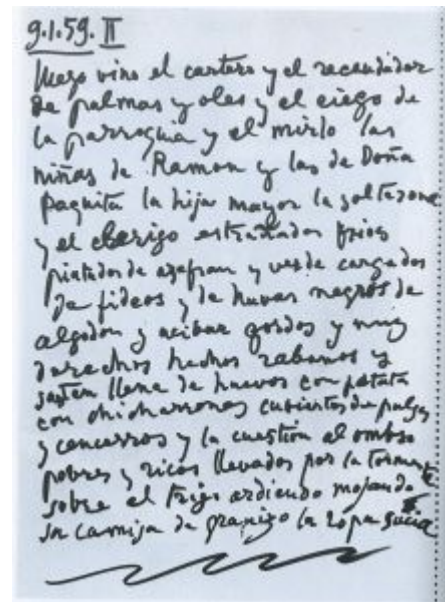 9.1.59. II
luego vino el cartero y el recaudador
de palmas y oles y el ciego de
la parroquia y el mirlo las
niñas de Ramon y las de Doña
Paquita la hija mayor la solterona
y el clerigo estrañados frios
pintados de azafran y verde cargados
de fideos y de huvas negras de
algodon y acibar gordos y muy
derechos hechos rabanos y
sarten llena de huevos con patata
con chicharrones cubiertos de pulgas
y cencerros y la cuestion al ombro
pobres y ricos llevados por la tormenta
sobre el trigo ardiendo mojando
su camisa de granizo la ropa sucia